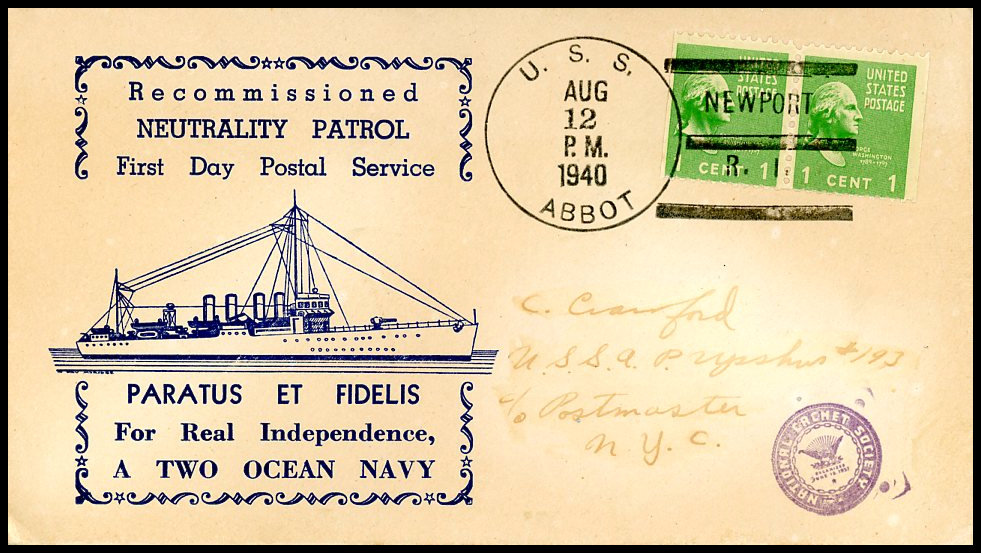 Recommissioned
NEUTRALITY PATROL
First Day Postal Service
PARATUS ET FIDELIS
For Real Independence,
A TWO OCEAN NAVY
U. S. S.
AUG
12
P. M.
1940
ABBOT
NEWPORT
R. I.
UNITED
STATES
POSTAGE
CENT 1
UNITED
STATES
POSTAGE
GEORGE
WASHINGTON
1789-1797
1 CENT 1
C. Crawford
U.S.S. A. P. Upshur #193
c/o Postmaster
N. Y. C.
NATIONAL CACHET SOCIETY
ORGANIZED
JUNE 1937